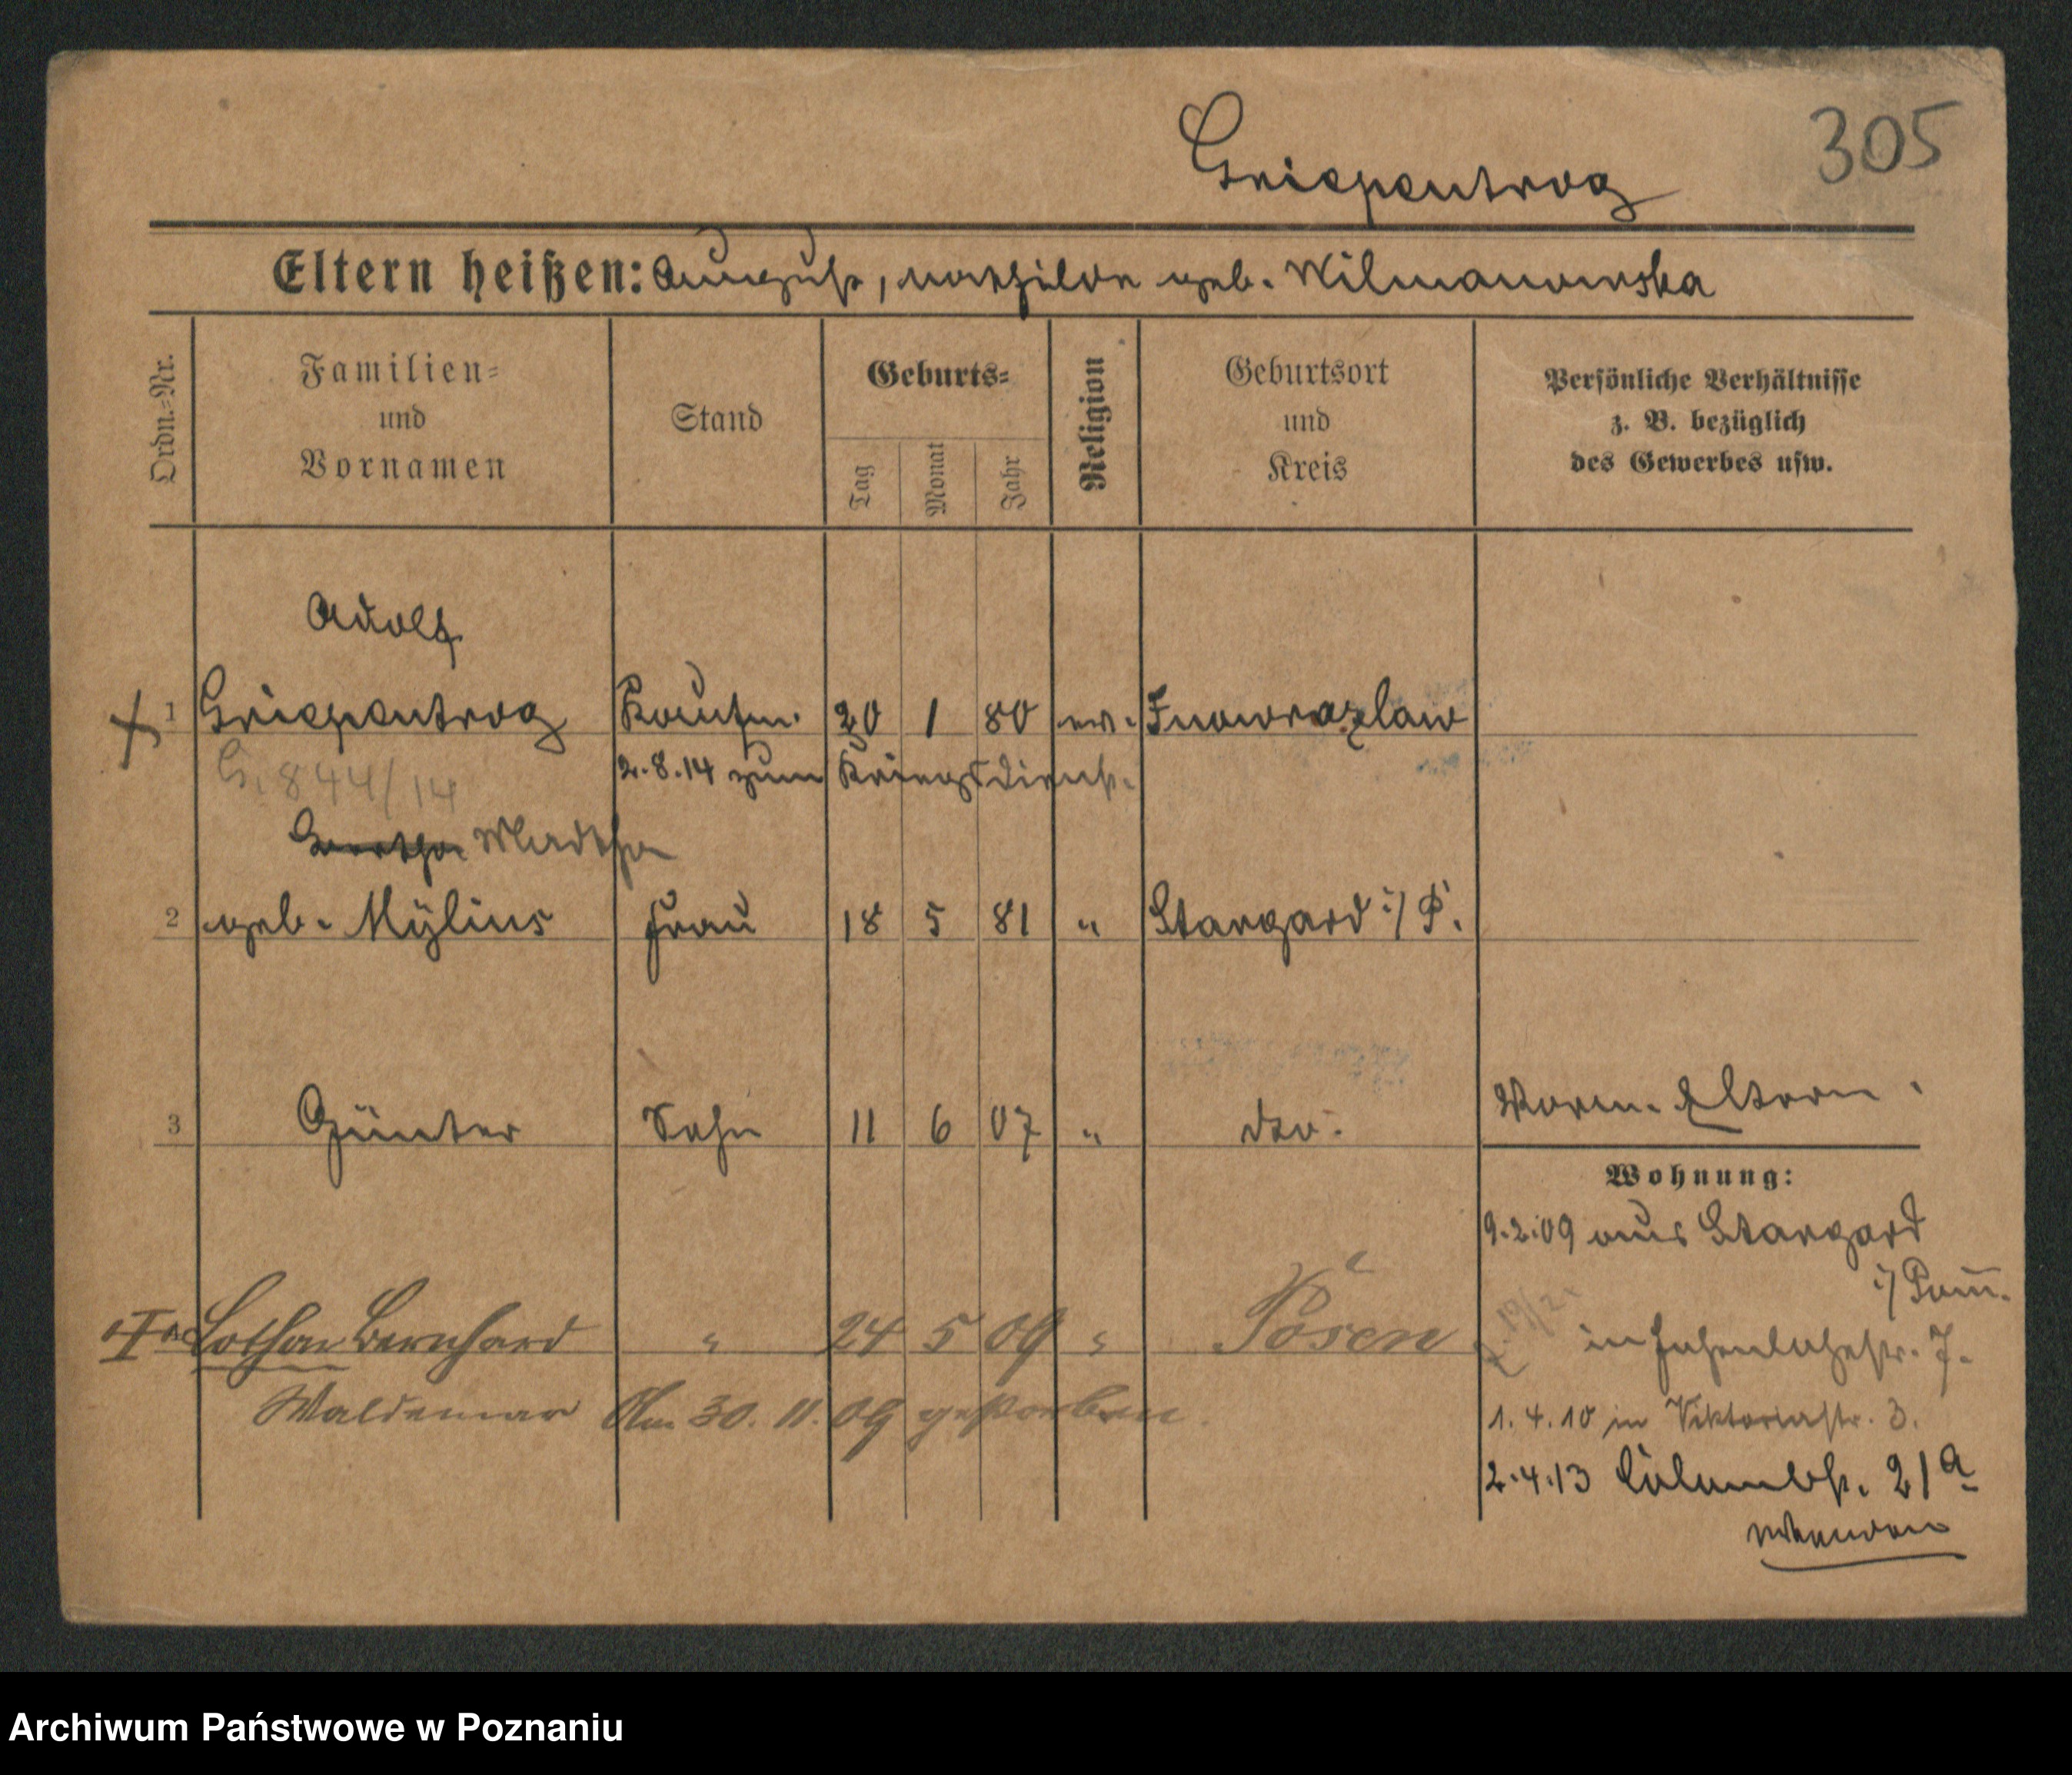 305
Griepentrog
Eltern heißen: August, Mathilde geb. Wilmanowska
Ordn.=Nr.
Familien=
und
Vornamen
Stand
Geburts=
Tag
Monat
Jahr
Religion
Geburtsort
und
Kreis
Persönliche Verhältnisse
z. B. bezüglich
des Gewerbes usw.
Adolf
1 Griepentrog Kaufm. 20 1 80 ev. Inowrazlaw
G. 844/14 2.8.14 zum Kriegsdienst.
Martha
2 geb. Mylius Frau 18 5 81 " Stargard i/P.
3 Günter Sohn 11 6 07 " dto.
Vorm. Eltern.
Wohnung:
9.2.09 aus Stargard
i/Pom.
19/2.
in Hohenlohestr. 7.
Lothar Bernhard " 24 5 09 " Posen
Waldemar Am 30. 11. 09 gestorben.
1. 4. 10 in Viktoriastr. 3.
2.4.13 Columbstr. 21a
Archiwum Państwowe w Poznaniu